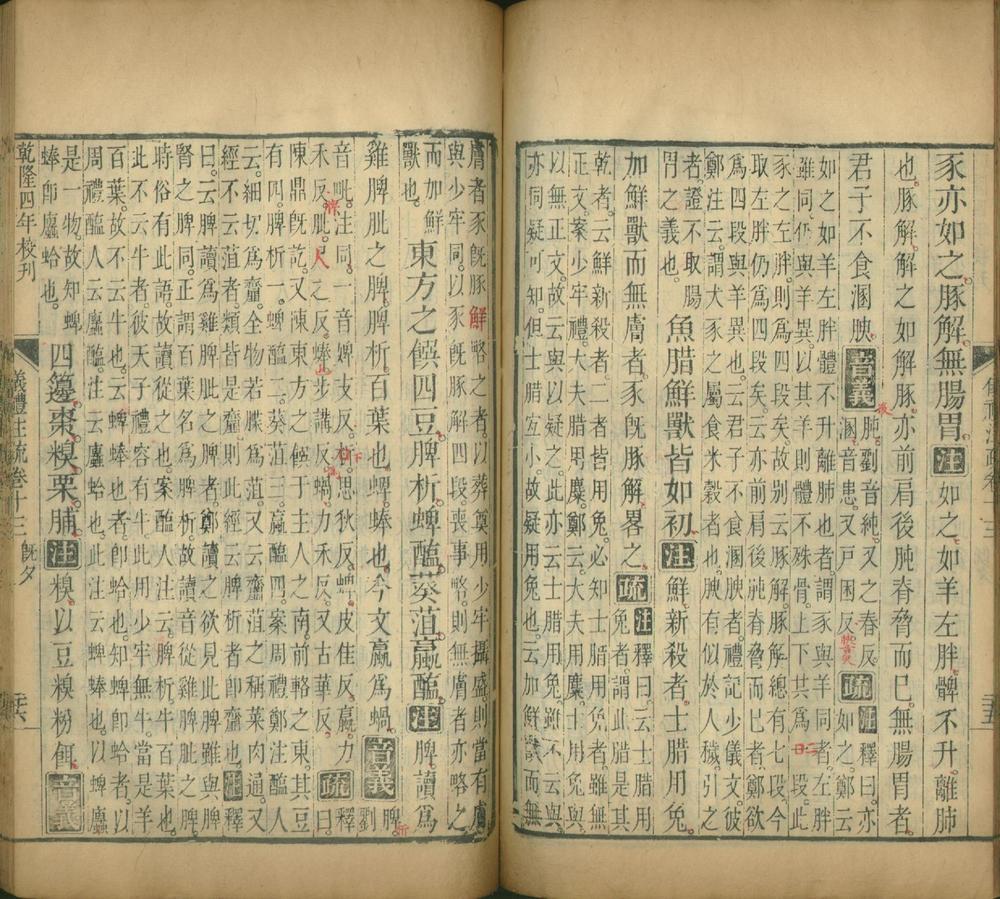 豕亦如之。豚解。無腸胃。注如之。如羊左胖。髀不升。離肺
也。豚解。解之如解豚。亦前肩後肫脊脅而已。無腸胃者。
君子不食溷腴。音義肫。劉音純。又之春反。溷音患。又戶困反。腴音臾疏注釋曰。亦如之。鄭云
如之如羊左胖體不升離肺也者謂豕與羊同者左胖
雖同。仍與羊異。以其羊則體不殊骨。上下共爲二段。此
豕之左胖。則爲四段矣。故別云豚解。豚解總有七段。今
取左胖。仍爲四段矣。云亦前肩後肫脊脅而已者。鄭欲
爲四段與羊異也。云君子不食溷腴者。禮記少儀文。彼
鄭注云。謂犬豕之屬食米穀者也。腴有似於人穢。引之
者。證不取腸胃之義也。魚腊鮮獸皆如初。注鮮新殺者。士腊用兔。
加鮮獸而無膚者。豕旣豚解。畧之。疏注釋曰。云士腊用兔者。謂此腊是其
乾者。云鮮新殺者。二者皆用兔。必知士腊用兔者。雖無
正文。案少牢禮。大夫腊用麋。鄭云。大夫用麋。士用兔與。
以無正文。故云與以疑之。此亦云士腊用兔。雖不云與。
亦同疑可知。但士腊宐小。故疑用兔也。云加鮮獸而無
膚者豕旣豚鮮略之者。以葬奠用少牢。攝盛則當有膚。
與少牢同。以豕旣豚解四段。喪事略。則無膚者亦略之。
而加鮮獸也。東方之饌。四豆。脾析。蜱醢。葵菹。蠃醢。注脾讀爲
雞脾肶之脾。脾析。百葉也。蜱。蜯也。今文蠃爲蝸。音義脾。劉
音毗。注同。一音婢支反。析思狄反。蜱皮佳反。蠃力
禾反。肶尺之反。蜯步講反。蝸力禾反。又古華反。疏釋曰。
陳鼎旣訖。又陳東方之饌于主人之南。前輅之東。其豆
有四。脾析一。蜱醢二。葵菹三。蠃醢四。案周禮鄭注醢人
云。細切爲齏。全物若䐑爲菹。又云。齏菹之稱。菜肉通。又
經不云菹者。類皆是齏。則此經云脾析者。卽齏也。注釋
曰。云脾讀爲雞脾肶之脾者。鄭讀之。欲見此脾雖與脾
腎之脾同。正謂百葉名爲脾析。故讀音從雞脾肶之脾。
時俗有此語。故讀從之也。案醢人注云。脾析。牛百葉也。
此不云牛者。彼天子禮。容有牛。此用少牢無牛。當是羊
百葉。故不云牛也。云蜱蜯也者。卽蛤也。知蜱卽蛤者。以
周禮醢人云蠯醢。注云。蠯。蛤也。此注云蜱蜯也。以蜱蠯
是一物。故知蜱蜯卽蠯蛤也。四籩。棗。糗。栗。脯。注糗。以豆糗粉餌。音義
乾隆四年校刊
儀禮注疏卷十三 旣夕